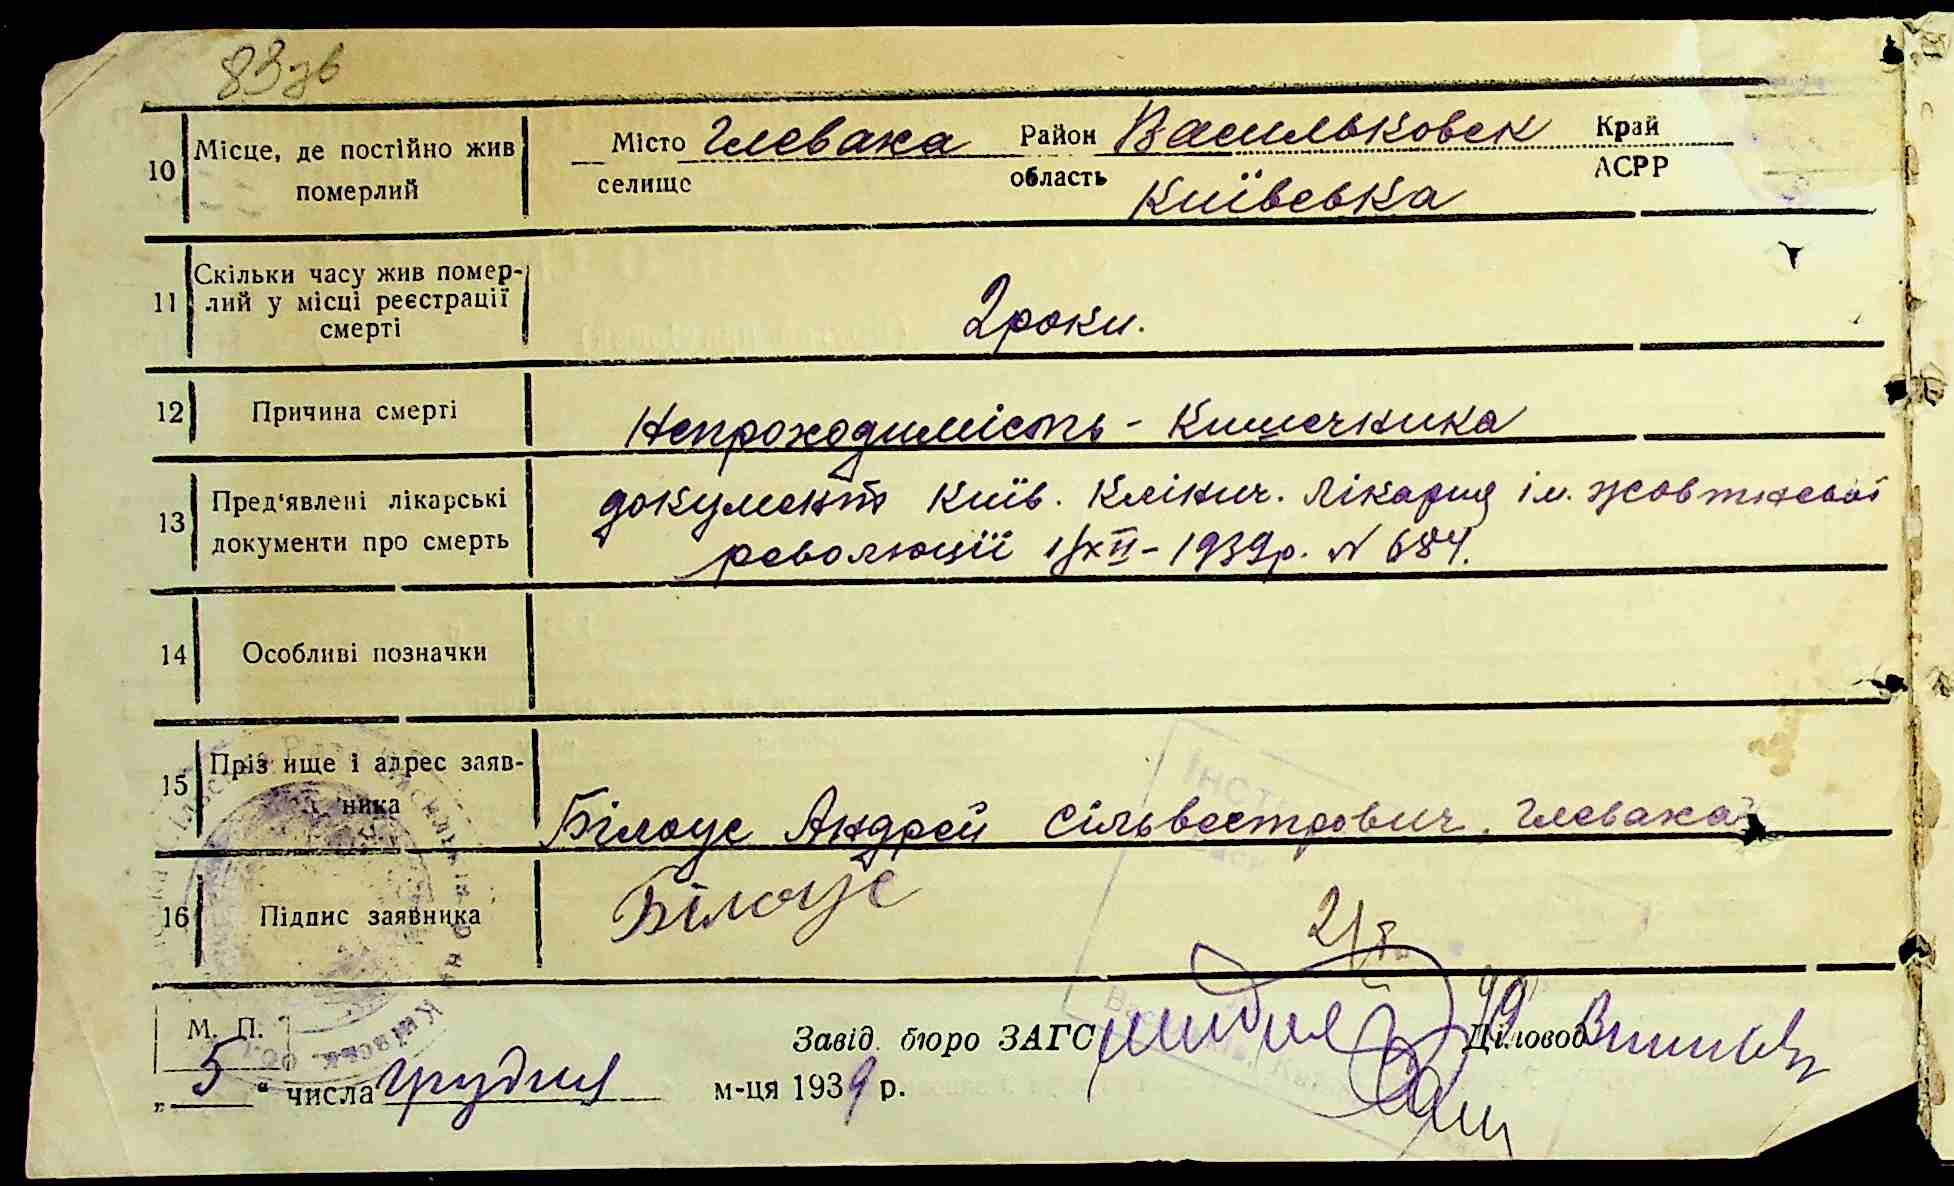 83зв
10 Місце, де постійно жив померлий Місто селище Глеваха Район область Васильковск Київська Край АСРР
11 Скільки часу жив помер-
лий у місці реєстрації
смерті
2 роки.
12 Причина смерті Непроходимість - Кишечника
13 Пред'явлені лікарські
документи про смерть
документ Київ. Клінич. Лікарня ім. жовтневої
революції 1/XII - 1939р. N 684.
14 Особливі позначки
15 Прізвище і адрес заяв-
ника
Білоус Андрей Сільвестрович. Глеваха
16 Підпис заявника Білоус
М. П.
Завід. бюро ЗАГС Діловод
„5“ числа грудня м-ця 1939 р.